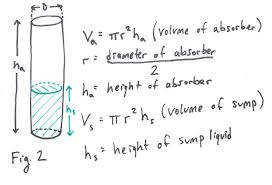 D
hₐ
hₛ
Vₐ = πr²hₐ (volume of absorber)
r = diameter of absorber / 2
hₐ = height of absorber
Vₛ = πr²hₛ (volume of sump)
hₛ = height of sump liquid
Fig. 2